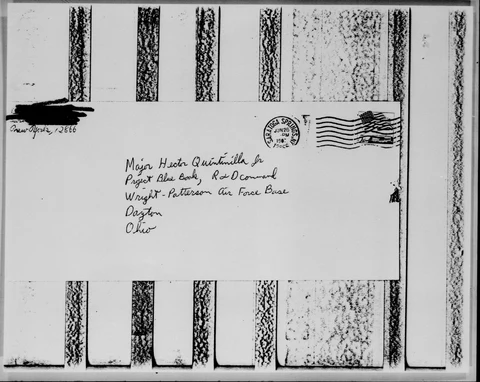 12866
SARATOGA SPRINGS, NY
JUN 20
PM
Major Hector Quintinilla Jr
Project Blue Book, R & D command
Wright-Patterson Air Force Base
Dayton
Ohio